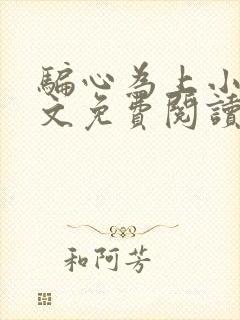 騙心為上小
文免費閱讀
和阿芳